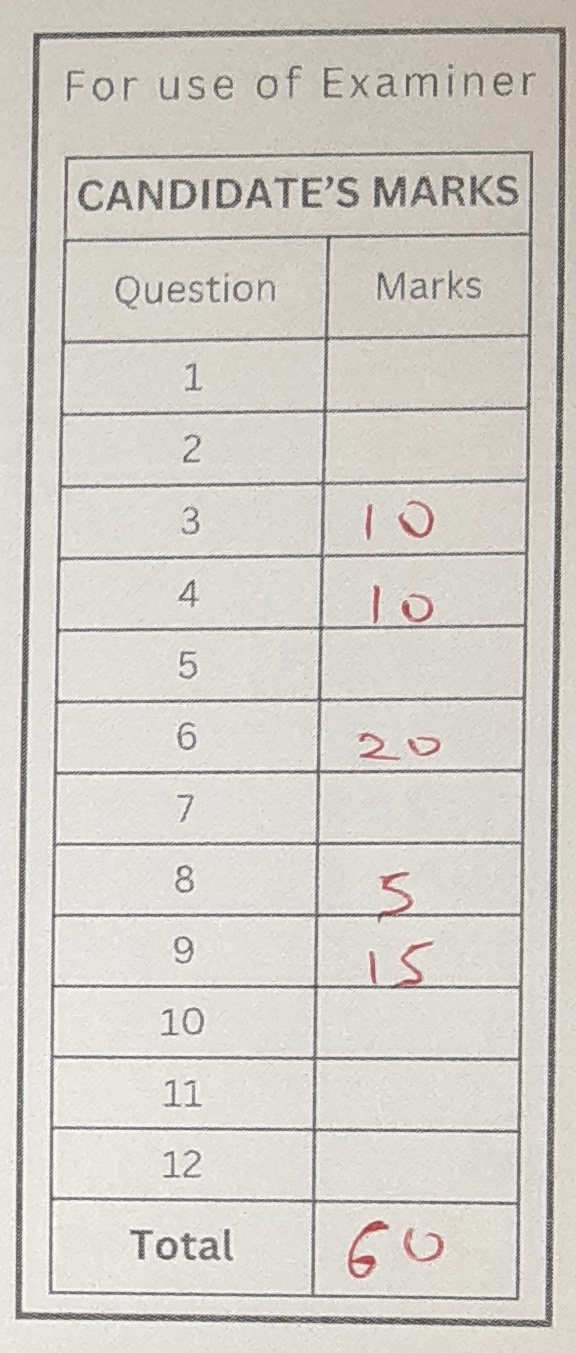 For use of Examiner
CANDIDATE'S MARKS
Question Marks
1
2
3 10
4 10
5
6 20
7
8 5
9 15
10
11
12
Total 60